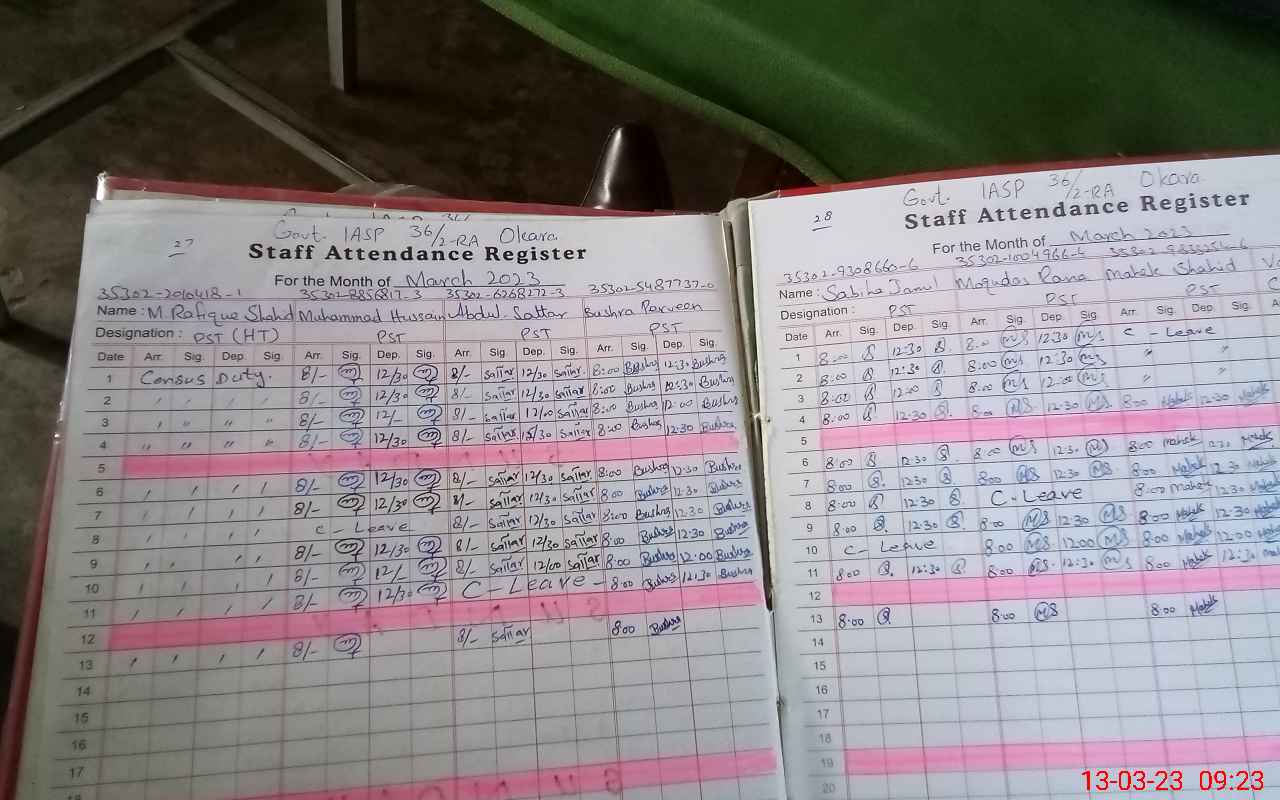 27
Govt. IASP 36/2-RA Okara
Staff Attendance Register
For the Month of March 2023
35302-2010418-1 35302-8856817-3 35302-6268272-3 35302-5487737-0
Name: M Rafique Shahd Muhammad Hussain Abdul Sattar Bushra Parveen
Designation: PST (HT) PST PST PST
Date Arr. Sig. Dep. Sig. Arr. Sig. Dep. Sig. Arr. Sig. Dep. Sig. Arr. Sig. Dep. Sig.
1 Census Duty. 8/- 12/30 8/- Sattar 12/30 Sattar 8:00 Bushra 12:30 Bushra
2 " " " " 8/- 12/30 8/- Sattar 12/30 Sattar 8:00 Bushra 12:30 Bushra
3 " " " " 8/- 12/- 8/- Sattar 12/00 Sattar 8:00 Bushra 12:00 Bushra
4 " " " " 8/- 12/30 8/- Sattar 12/30 Sattar 8:00 Bushra 12:30 Bushra
5
6 " " " " 8/- 12/30 8/- Sattar 12/30 Sattar 8:00 Bushra 12:30 Bushra
7 " " " " 8/- 12/30 8/- Sattar 12/30 Sattar 8:00 Bushra 12:30 Bushra
8 " " " " C-Leave 8/- Sattar 12/30 Sattar 8:00 Bushra 12:30 Bushra
9 " " " " 8/- 12/30 8/- Sattar 12/30 Sattar 8:00 Bushra 12:30 Bushra
10 " " " " 8/- 12/- 8/- Sattar 12/00 Sattar 8:00 Bushra 12:00 Bushra
11 " " " " 8/- 12/30 C-Leave- 8:00 Bushra 12:30 Bushra
12
13 " " " " 8/- 8/- Sattar 8:00 Bushra
14
15
16
17
28
Govt. IASP 36/2-RA Okara
Staff Attendance Register
For the Month of March 2023
35302-9308660-6 35302-1004966-4
Name: Sabiha Jamil Moqudas Rana Mahek Shahid
Designation: PST PST PST
Date Arr. Sig. Dep. Sig. Arr. Sig. Dep. Sig. Arr. Sig. Dep. Sig.
1 8:00 S 12:30 S. 8:00 MS 12:30 MS C-Leave
2 8:00 S 12:30 S. 8:00 MS 12:30 MS " "
3 8:00 S 12:00 S 8:00 MS 12:00 MS " "
4 8:00 S 12:30 S. 8:00 MS 12:30 MS 8:00 Mahek 12:30 Mahek
5
6 8:00 S 12:30 S. 8:00 MS 12:30 MS 8:00 Mahek 12:30 Mahek
7 8:00 S. 12:30 S 8:00 MS 12:30 MS 8:00 Mahek 12:30 Mahek
8 8:00 S 12:30 S C-Leave 8:00 Mahek 12:30 Mahek
9 8:00 S. 12:30 S 8:00 MS 12:30 MS 8:00 Mahek 12:30 Mahek
10 C-Leave 8:00 MS 12:00 MS 8:00 Mahek 12:00 Mahek
11 8:00 S. 12:30 S 8:00 MS. 12:30 MS 8:00 Mahek 12:30
12
13 8:00 S 8:00 MS 8:00 Mahek
14
15
16
17
18
19
20
13-03-23 09:23